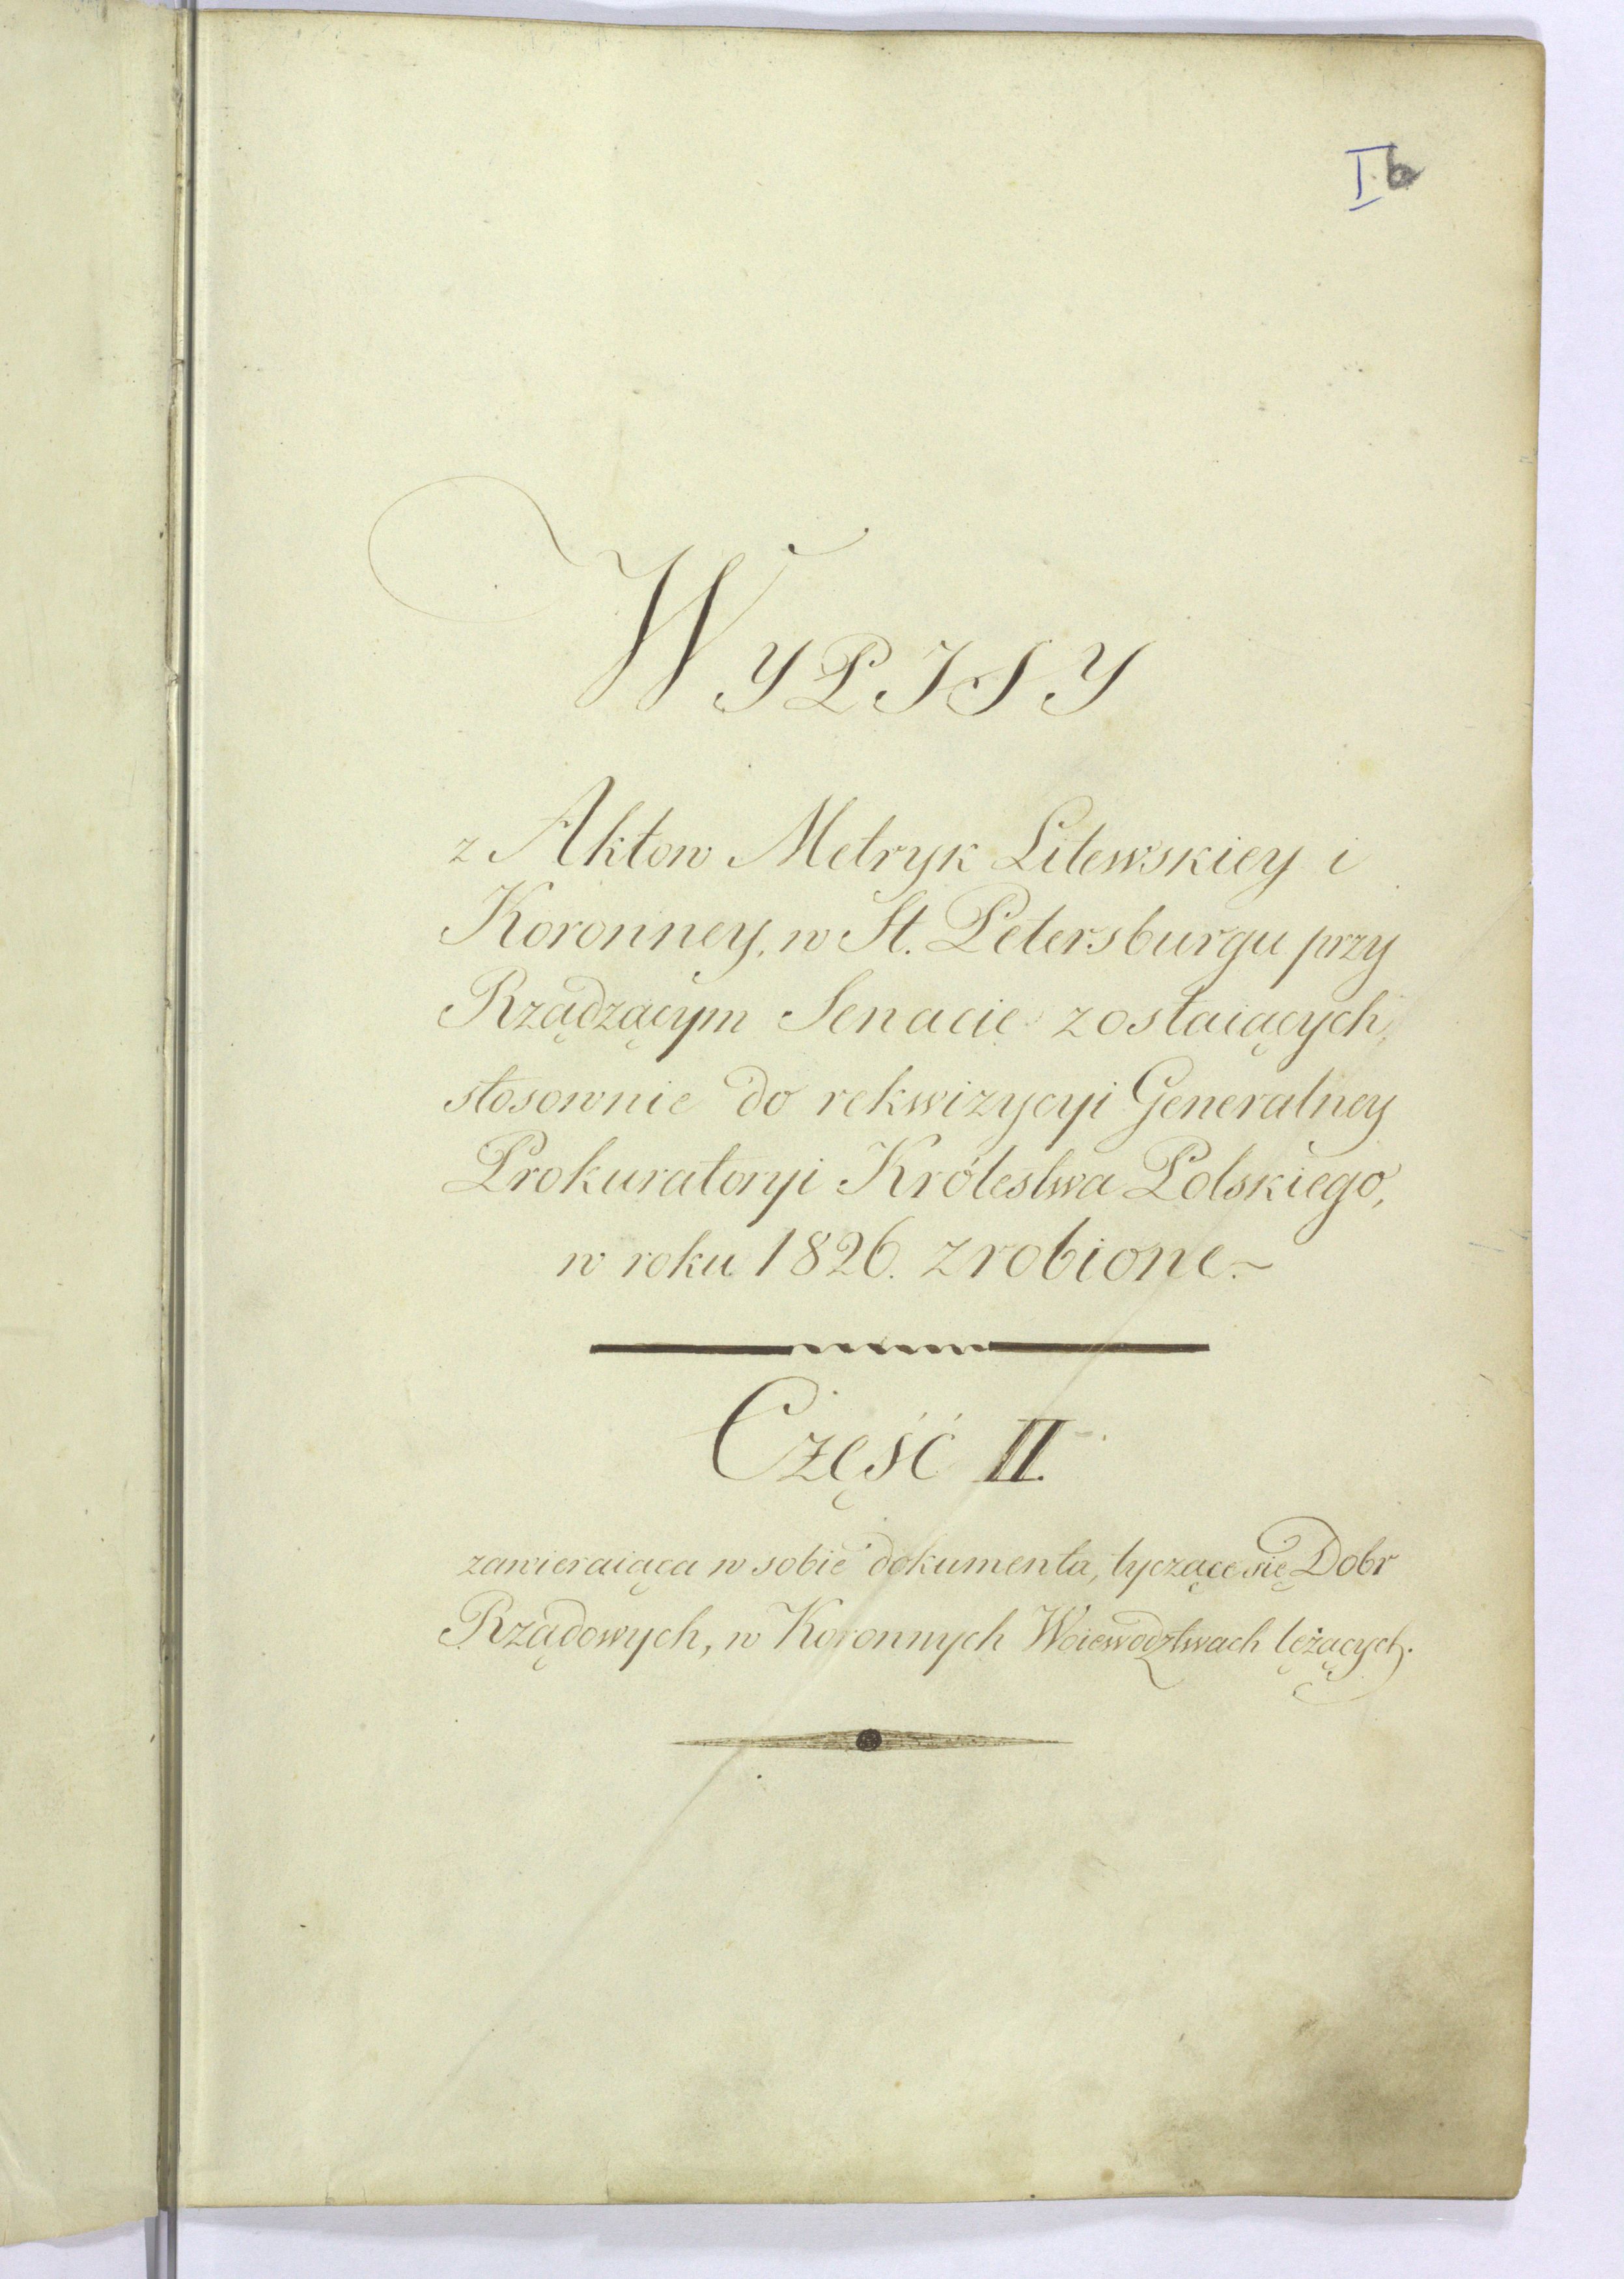 I b
WYPISY
z Aktow Metryk Litewskiey i
Koronney, w St. Petersburgu przy
Rządzącym Senacie zostaiących,
stosownie do rekwizycyi Generalney
Prokuratoryi Królestwa Polskiego,
w roku 1826. zrobione.~
Część II.
zawieraiąca w sobie dokumenta, tyczące się Dobr
Rządowych, w Koronnych Woiewodztwach lężących.